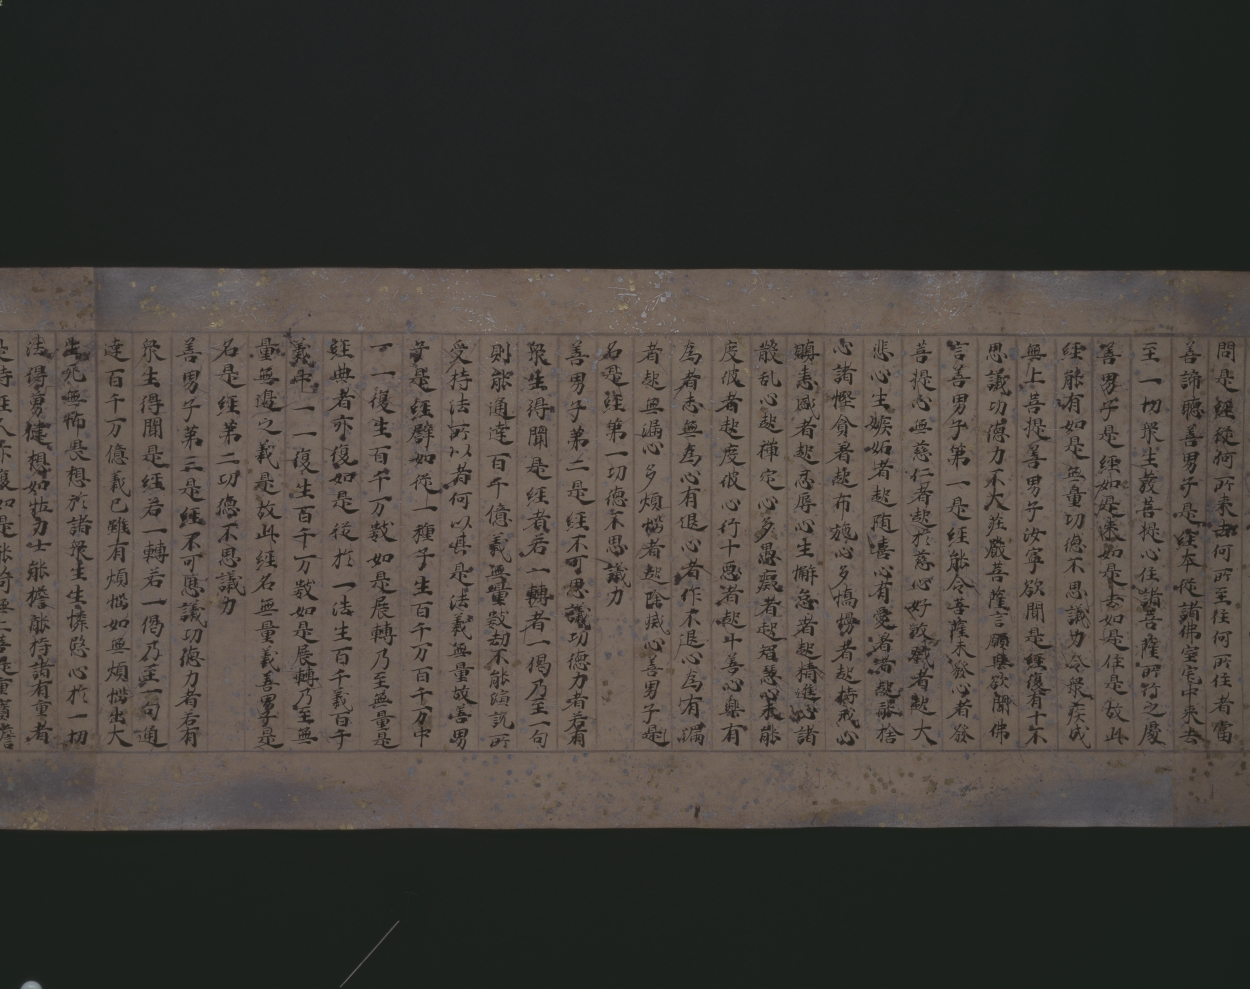 問是經從何所来去何所至住何所住者當
善諦聽善男子是經本從諸佛室宅中来去
至一切眾生發菩提心住諸菩薩所行之處
善男子是經如是来如是去如是住是故此
經能有如是無量功徳不思議力令眾疾成
無上菩提善男子汝寧欲聞是經復有十不
思議功徳力不大荘嚴菩薩言願樂欲聞佛
言善男子第一是經能令菩薩未發心者發
菩提心無慈仁者起於慈心好煞戮者起大
悲心生嫉妬者起随喜心有愛著者起能捨
心諸慳貪者起布施心多憍慢者起持戒心
瞋恚盛者起忍辱心生懈怠者起精進心諸
散乱心起禅定心多愚癡者起智慧心未能
度彼者起度彼心行十悪者起十善心樂有
為者志無為心有退心者作不退心為有漏
者起無漏心多煩惱者起除滅心善男子是
名是經第一功徳不思議力
善男子第二是經不可思議功徳力者若有
眾生得聞是經者若一轉若一偈乃至一句
則能通達百千億義無量數劫不能演説所
受持法所以者何以其是法義無量故善男
子是經譬如從一種子生百千万百千万中
一一復生百千万數如是展轉乃至無量是
經典者亦復如是從於一法生百千義百千
義中一一復生百千万數如是展轉乃至無
量無邊之義是故此經名無量義善男子是
名是經第二功徳不思議力
善男子第三是經不可思議功徳力者若有
眾生得聞是經若一轉若一偈乃至一句通
達百千万億義已雖有煩惱如無煩惱出大
生死無怖畏想於諸眾生生憐愍心於一切
法得勇健想如壮力士能擔能持諸有重者
是持經人亦復如是能荷無上菩提重寶擔